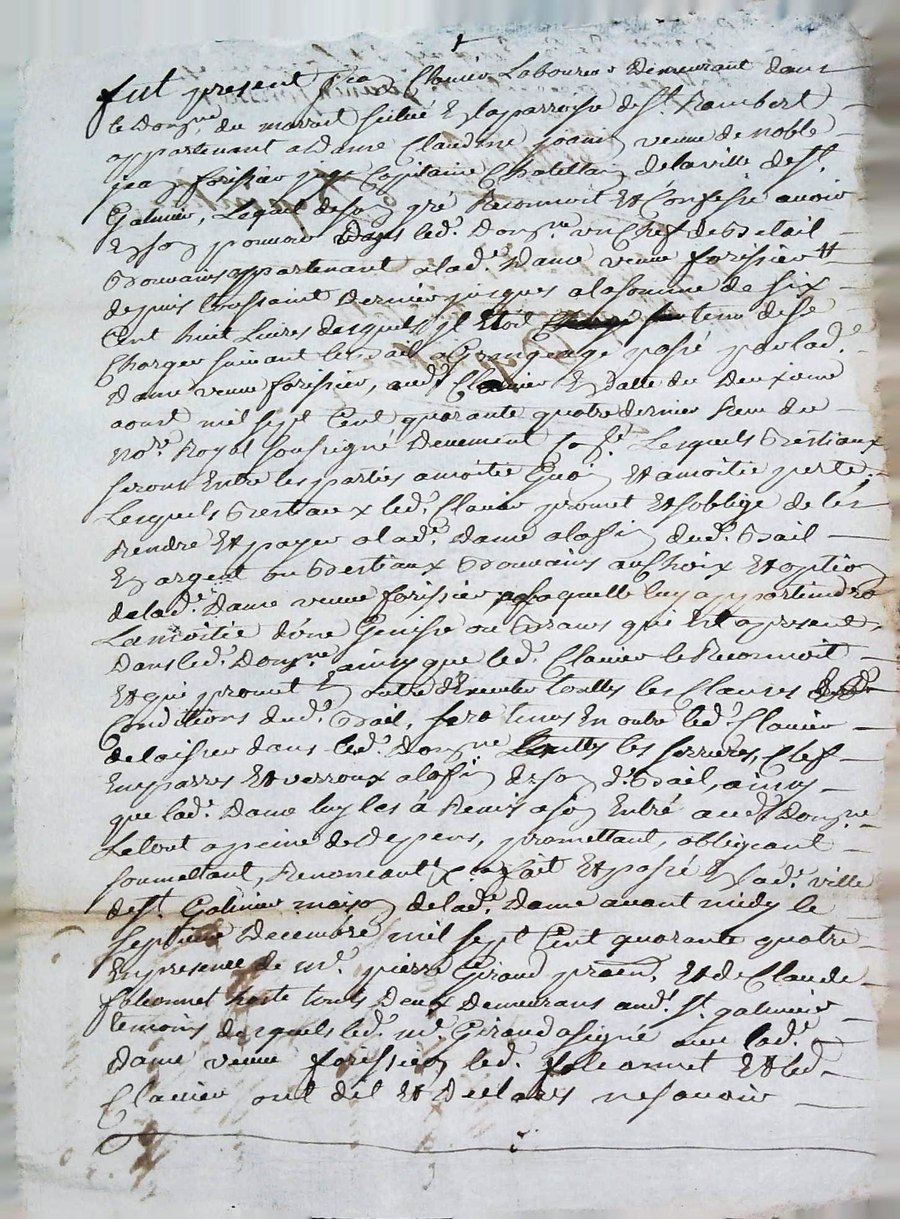 fut present jean Clanier Laboureur demeurant dans
le Domne. du marrait scitué En la parroisse de St. Rambert
appartenant a Dame Claudine veuve de noble
jean forissier juge Capitaine Chatellain de la ville de St.
Galmier, Lequel de son gré Reconnoit Et Confesse avoir
En son pouvoir Dans led. Domne. un Chef de Betail
appartenant a lade. Dame veuve forissier
depuis toussaint dernier jusques a la somme de six
Cent huit Livres desquels jl Etoit tenu de se
Charger suivant le Bail a passé par lade.
Dame veuve forissier, audt. Clanier En datte du Deuxieme
aoust mil sept Cent quarante quatre dernier Reçu du
nore. Royal soussigné Deuement Lesquels Bestiaux
seront Entre les parties a moitié Et a moitié perte
Lesquels Bestiaux led. Clanier promet Et soblige de les
Rendre Et payer a lade. Dame a la fin dud. Bail
En argent ou Bestiaux au Choix Et option
de lade. Dame veuve forissier a laquelle luy appartiendra
La moitié d'une Genisse ou qui Est apresent
Dans led. Domne. ainsy que led. Clanier le Reconnoit
Et qui promet En outre d'Executer touttes les Clauses
Conditions dud. Bail, sera tenu En outre led. Clanier
de laisser dans led. Domne. touttes les serrures, Clef
Emparres Et verroux a la fin de son d. Bail, ainsy
que lade. Dame luy les à Remis a son Entré aud. Domne.
Le tout a peine de Depens, promettant, obligeant
soumettant, Renonceant, fait Et passé En lade. ville
de St. Galmier maison de lade. Dame avant midy le
septieme Decembre mil sept Cent quarante quatre
En presence de me. pierre Giraud Et de Claude
touts Deux Demeurans aud. St. galmier
temoins desquels led. me. Giraud a signé avec lade.
Dame veuve forissier, led. Et led.
Clanier ont dit Et Declarés ne savoir